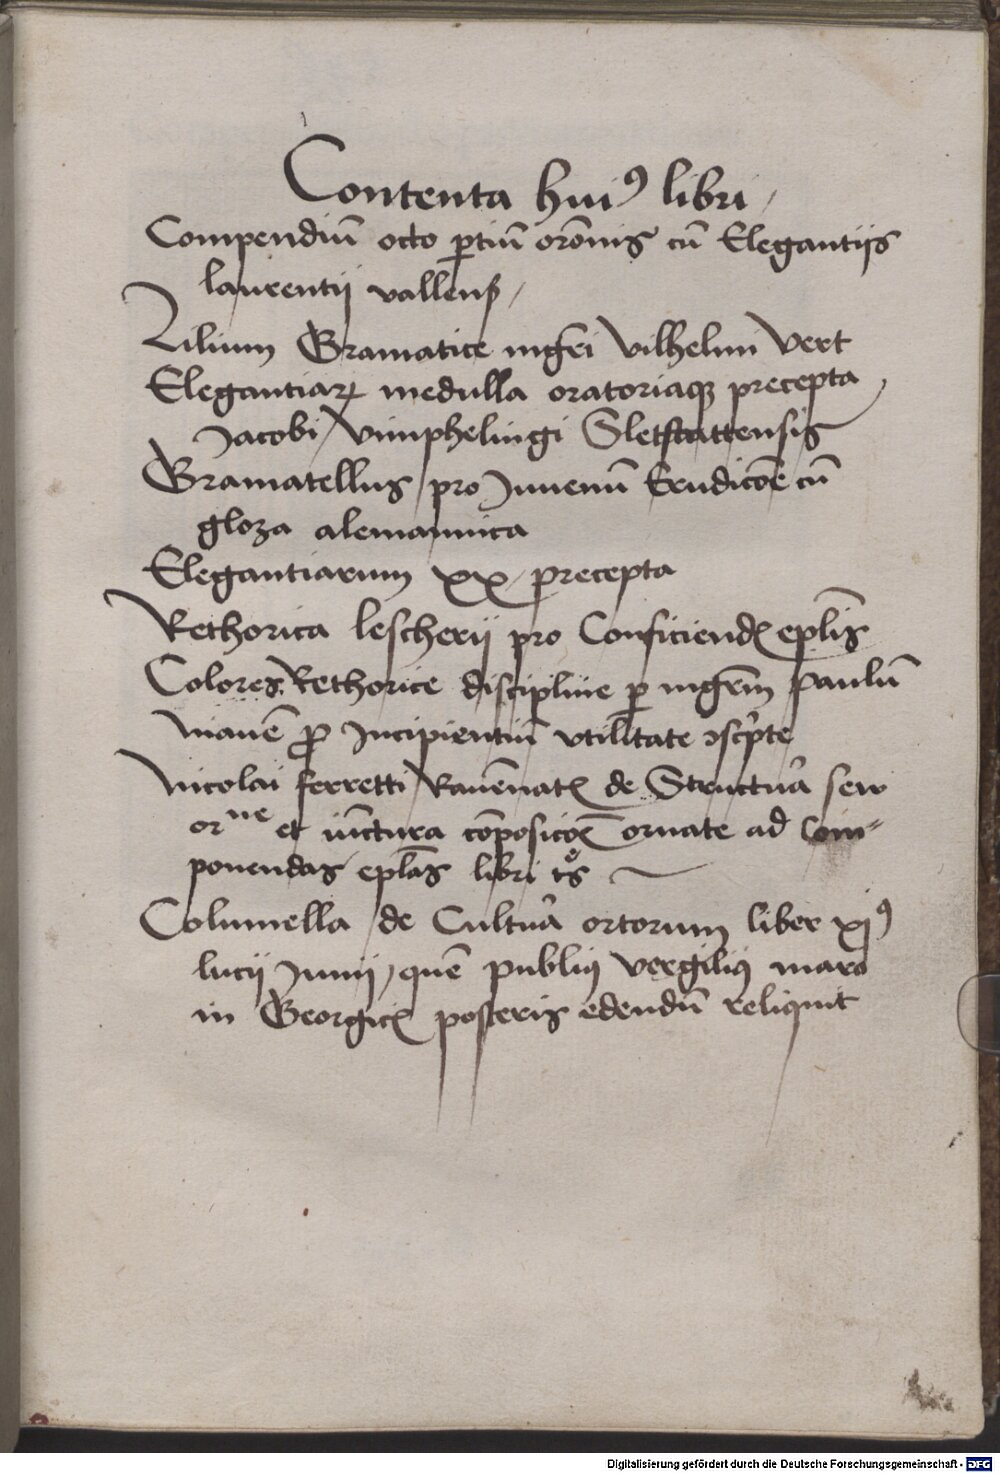 Contenta huiꝰ libri
Compendiū octo ꝑtiū orōnis cū Elegantijs
laurentij vallenſ
Lilium Gramatice mgr̄i Vilhelmi Vert
Elegantiaꝝ medulla oratoriaqꝫ precepta
Jacobi Vimphelingi Sletstattensis
Gramatellus pro Juuenū Erudicōe cū
gloza alemannica
Elegantiarum xx precepta
Rethorica lescherij pro Conficiendꝭ epl̄is
Colores Rethorice discipline ꝑ mgr̄m paulū
niauē ꝓ Incipientiū vtilitate ↄſcp̄te
Nicolai ferretti Rauēnatꝭ de Structura seu
orne et iūctura cōposicōeꝭ ornate ad Com⸗
ponendas epl̄as libri tͦs
Columella de Cultura ortorum liber xjꝰ
lucij Junij quē publiꝰ vergiliꝰ maro
in Georgicꝭ posteris edendū reliquit
Digitalisierung gefördert durch die Deutsche Forschungsgemeinschaft - DFG